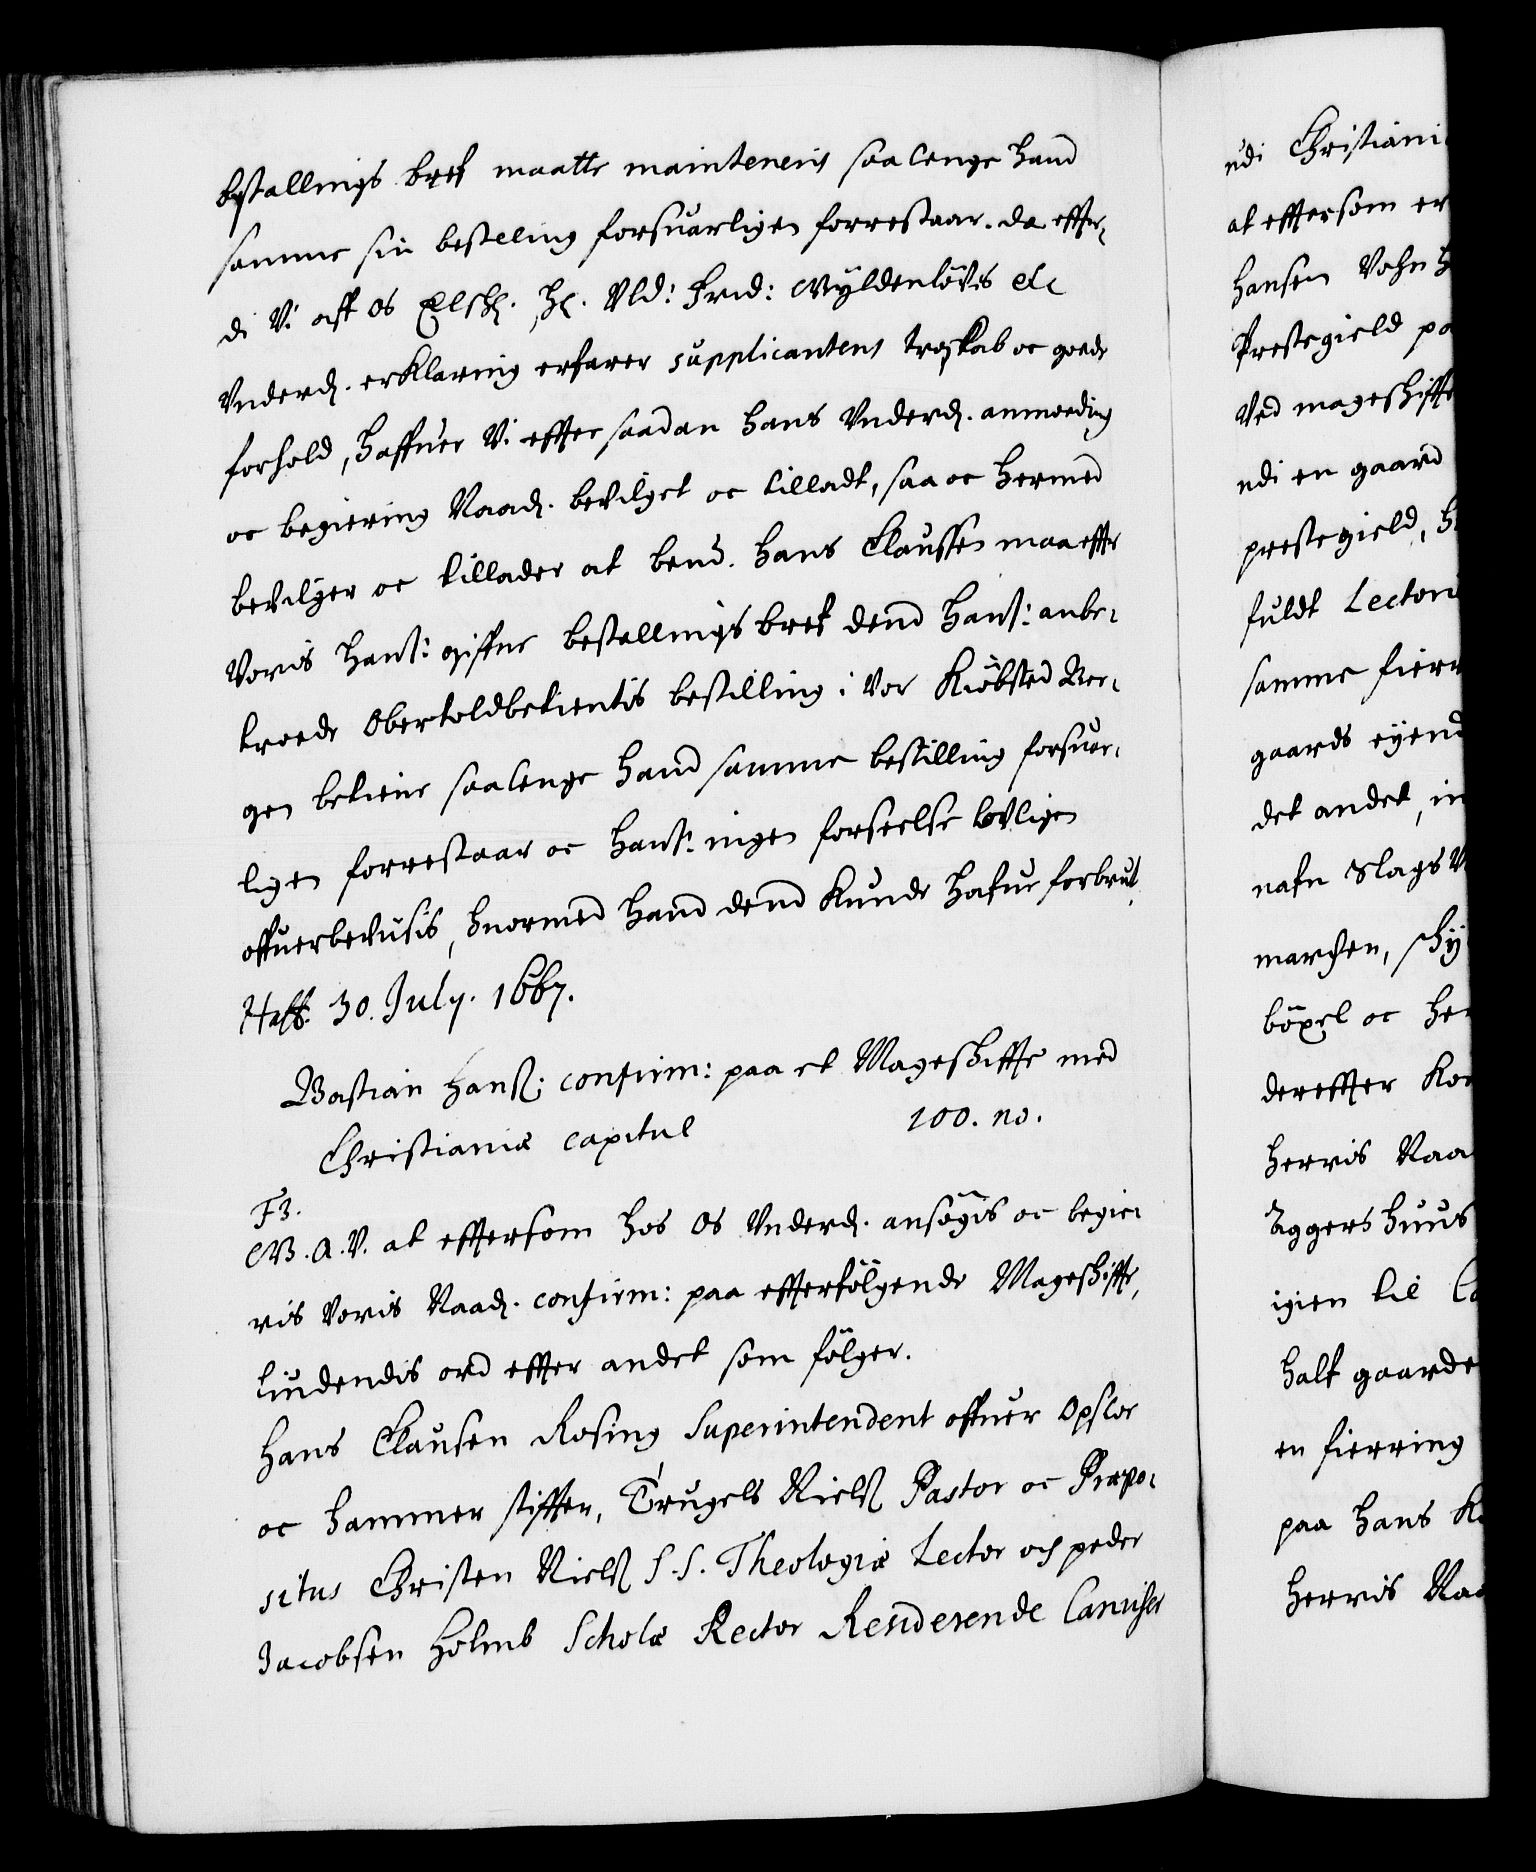 bestallings bref maatte mainteneris saa lenge hand
samme sin bestelling forsuarligen forrestaar. da effter-
di Vi aff os Elskl. Hl. Uld: Frid: GyldenlöVis etc
Underd. erklaring erfarer supplicantens troskab oc goede
forhold, haffuer Vi effter saadan hans Underd. anmoeding
oc begiering Naad. bevilget oc tilladt, saa oc hermed
bevilger oc tillader at bend. Hans Claussen maa effter
Voris hans: gifne bestallings bref dend hans: anbe-
troede Obertoldbetientis bestilling i Vor Kiöbsted Ber-
gen betiene saa lenge hand samme bestilling forsuar-
ligen forrestaar oc hans: ingen forseelse lovligen
offuerbevisis, huormed hand dend kunde hafue forbrut.
Haff. 30. July. 1667.
Bastian Hanß: confirm: paa et Mageskiffte med
Christianiæ capitul 100. no.
F3.
G.A.V. at effter som hos os Underd. ansögis oc begie-
ris Voris Naad. confirm: paa effterfölgende Mageskiffte,
liudendis ord effter andet som fölger.
Hans Clausen Rosing Superintendent offuer Opsloe
oc Hammer stiffter, Trugels Nielß Pastor oc Præpo-
situs Christen Nielß S.S. Theologiæ Lector och peder
Jacobsen Holmb Scholæ Rector Residerende Canicher
udi Christiani
at effter som er
Hansen Vohn h
Prestegield pa
Ved mageskiffte
udi en gaard
prestegield, h
fuldt Lectori
samme fier
gaards eyend
det andet, in
nafn Slags V
marchen, sky
böxel oc he
dereffter Ko
herris Naa
Aggershuus
igien til Ca
half gaarde
en fierring
paa Hans K
herris Naa